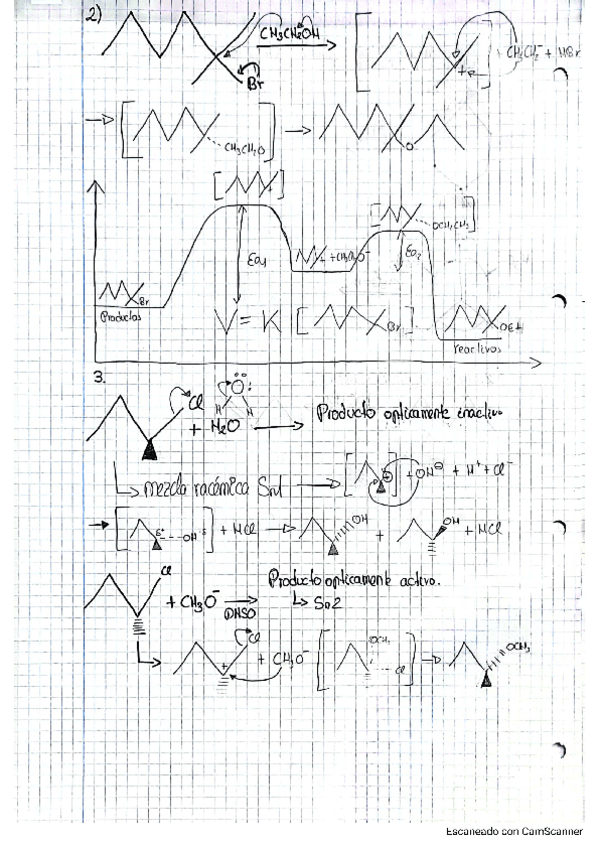 2)
CH3CH2OH
Br
CH3CH2O
O
Br
Productos
Ea1
Ea2
OCH2CH3
V = K [ Br]
OEt
reactivos
3.
Cl
O
H H
+ H2O → Producto opticamente inactivo
↳ mezcla racémica Sn1 → + OH⊖ + H+ + Cl-
→ δ+ ---OH δ- + HCl → OH + OH + HCl
Cl
+ CH3O- → Producto opticamente activo.
DMSO ↳ Sn2
Cl
+ CH3O- OCH3 Cl → OCH3
Escaneado con CamScanner